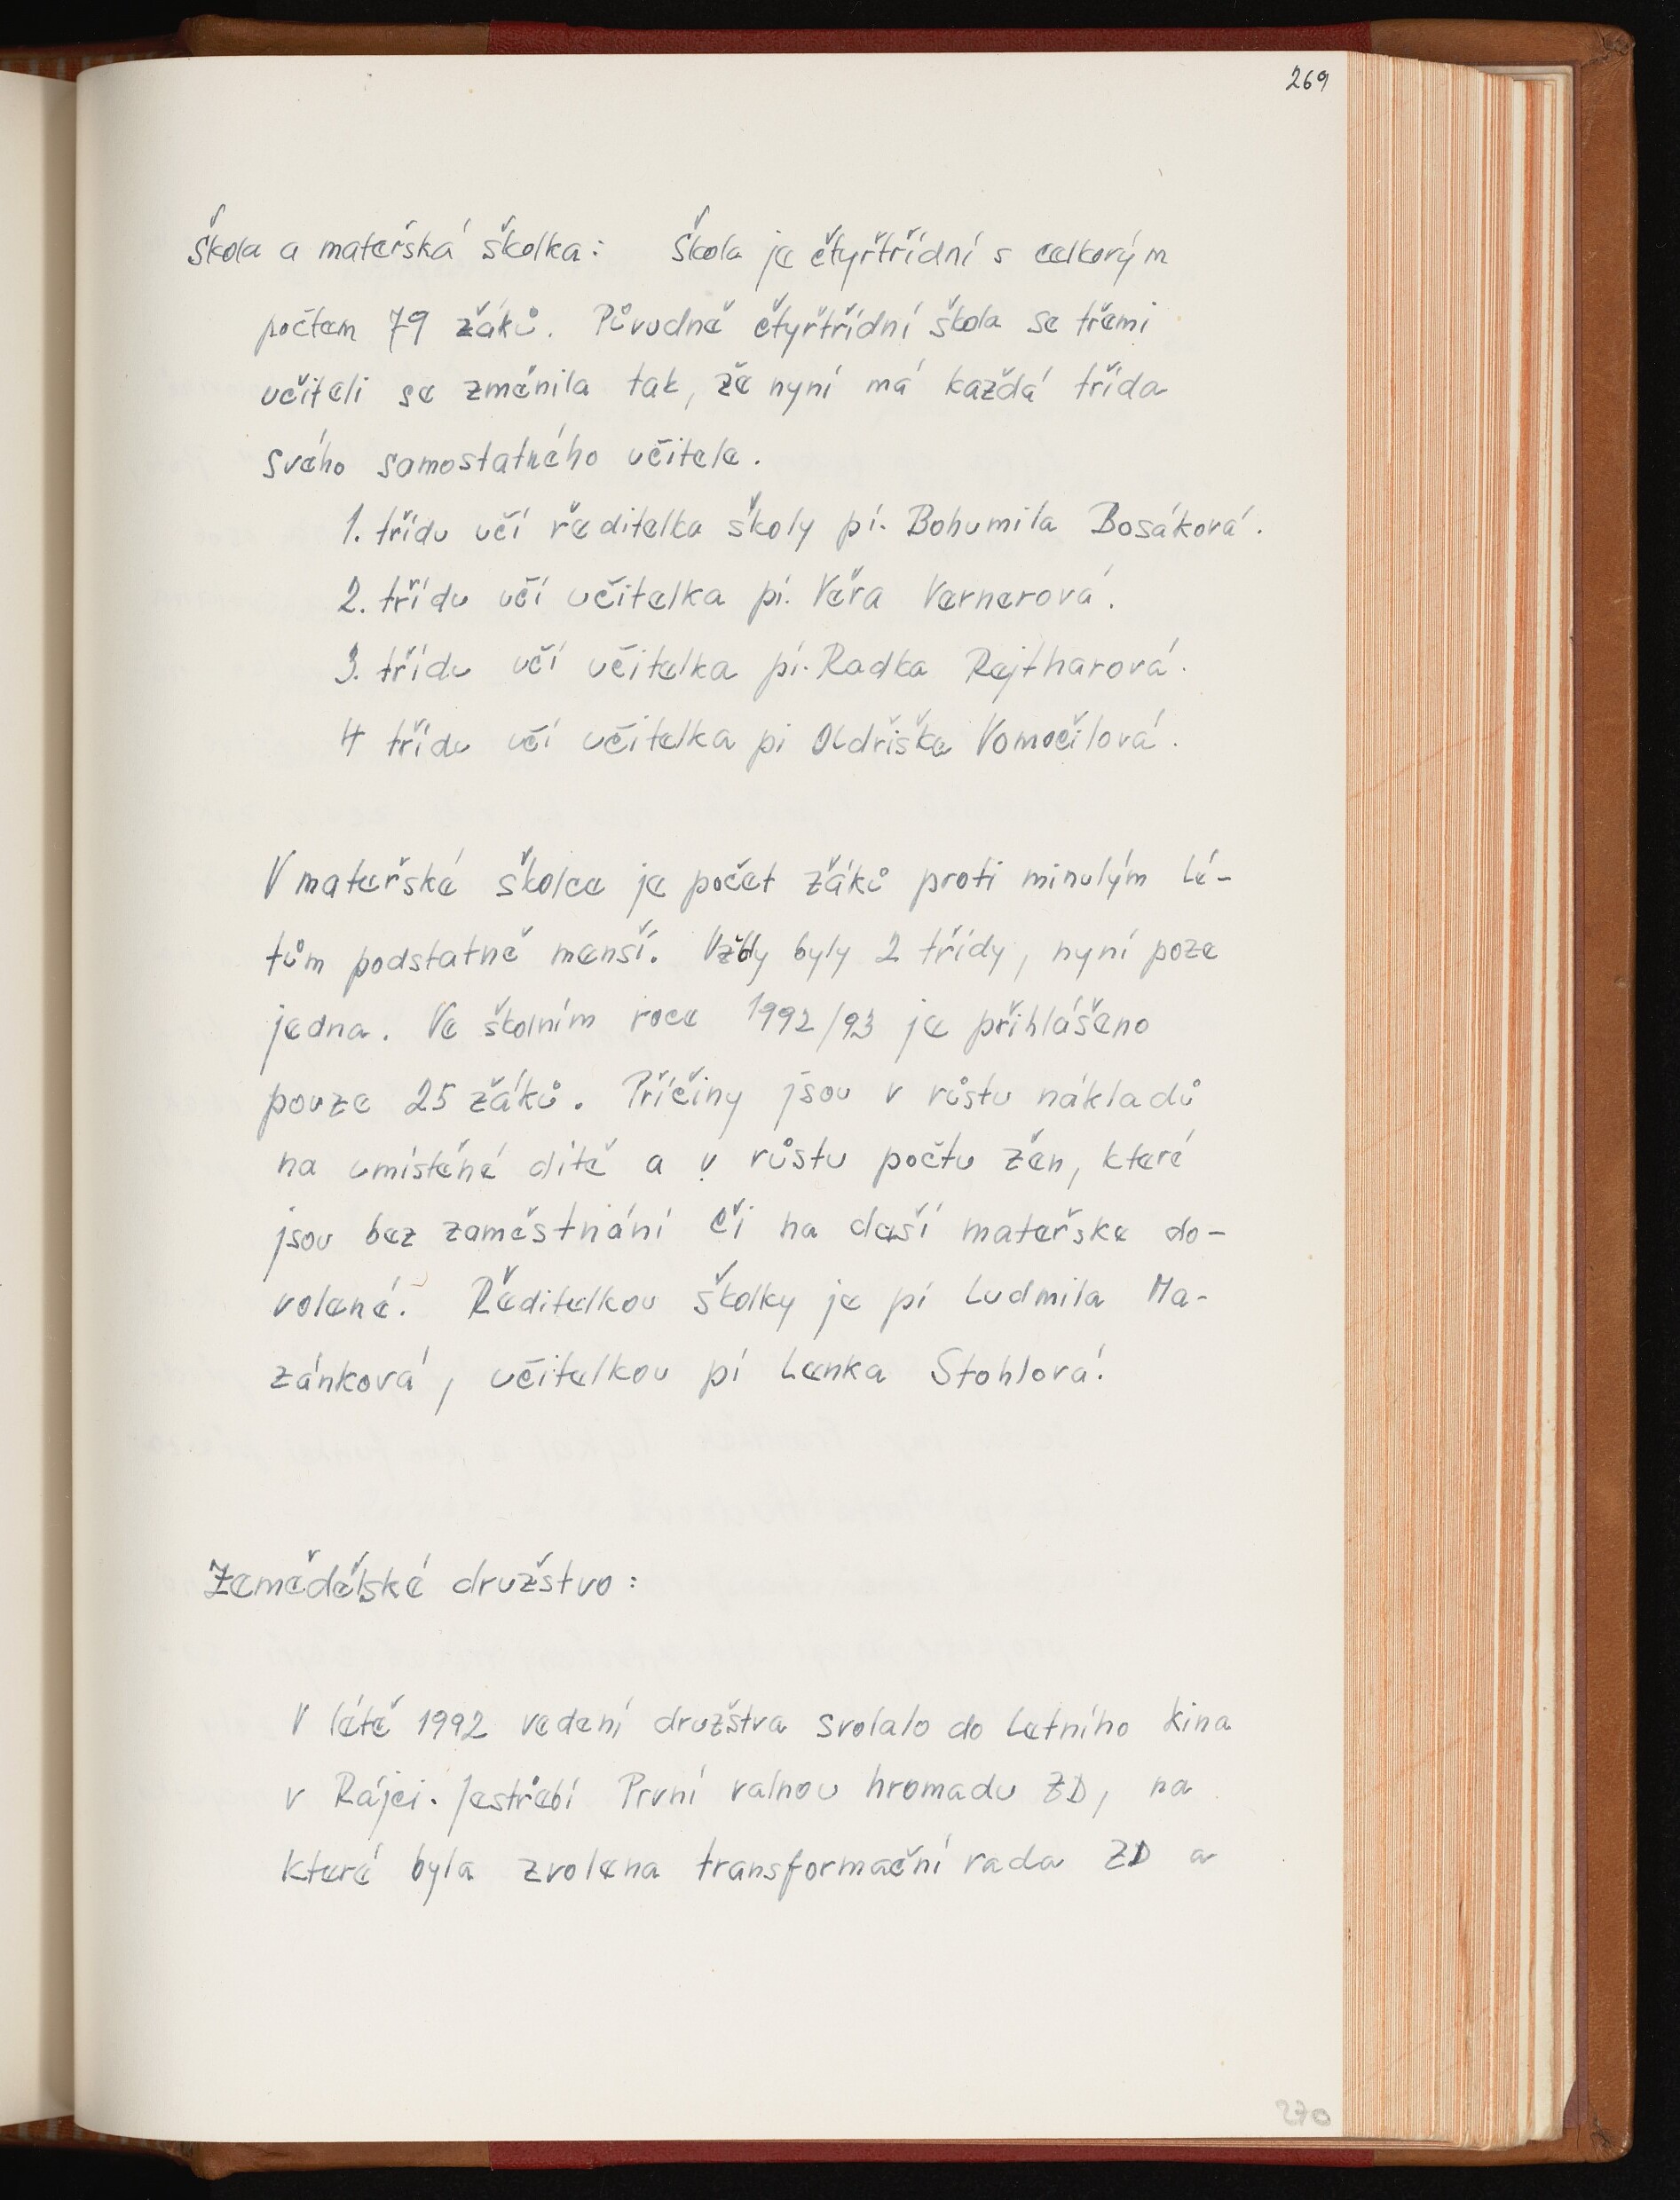 269
Škola a mateřská školka: Škola je čtyřtřídní s celkovým
počtem 79 žáků. Původně čtyřtřídní škola se třemi
učiteli se změnila tak, že nyní má každá třída
svého samostatného učitele.
1. třídu učí ředitelka školy pí. Bohumila Bosáková.
2. třídu učí učitelka pí. Věra Vernerová.
3. třídu učí učitelka pí. Radka Rejtharová.
4 třídu učí učitelka pi Oldřiška Vomočilová.
V mateřské školce je počet žáků proti minulým lé-
tům podstatně menší. Vždy byly 2 třídy, nyní poze
jedna. Ve školním roce 1992/93 je přihlášeno
pouze 25 žáků. Příčiny jsou v růstu nákladů
na umístěné dítě a v růstu počtu žen, které
jsou bez zaměstnání či na daší mateřske do-
volené. Ředitelkou školky je pí Ludmila Ma-
zánková, učitelkou pí Lenka Stohlová.
Zemědělské družstvo:
V létě 1992 vedení družstva svolalo do Letního kina
v Rájci. Jestřebí První valnou hromadu ZD, na
které byla zvolena transformační rada ZD a
270